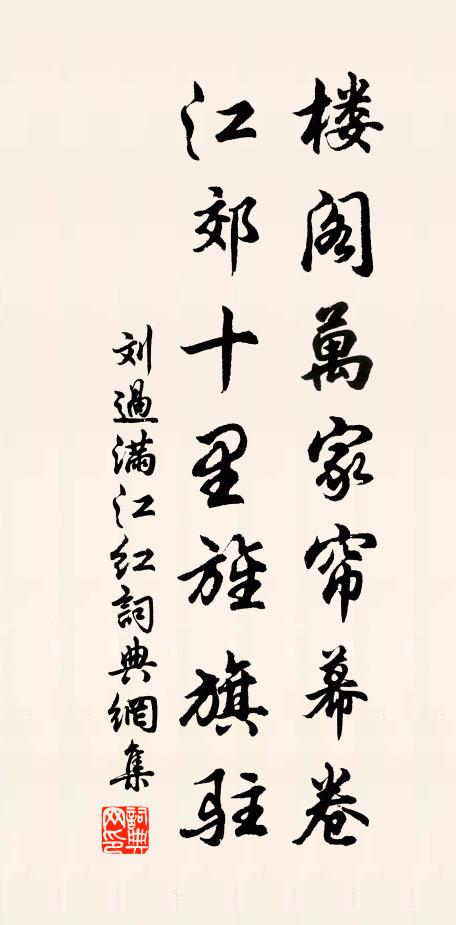 楼阁萬家帘幕卷
江郊十里旌旗驻
刘過满江红詞典網集
詞典網印